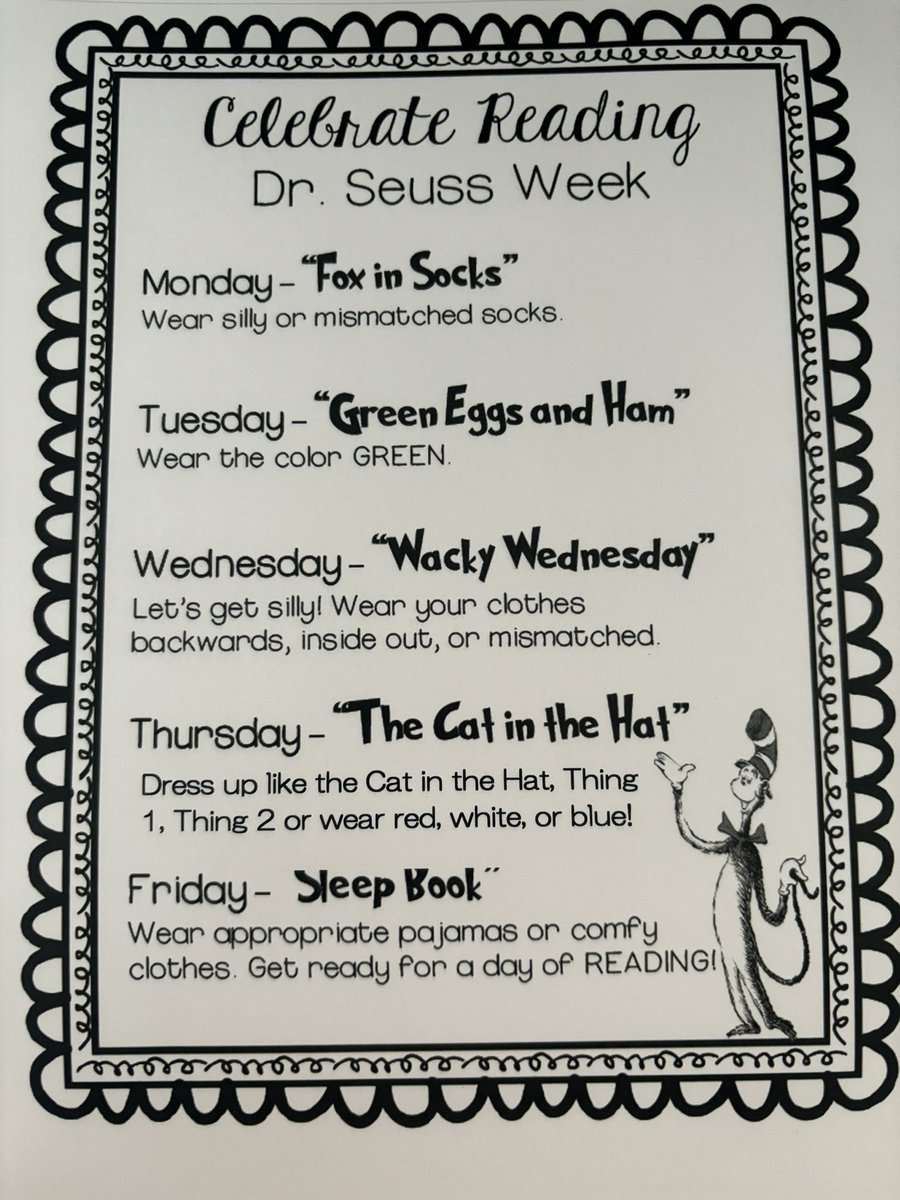 Celebrate Reading
Dr. Seuss Week
Monday- "Fox in Socks"
Wear silly or mismatched socks.
Tuesday- "Green Eggs and Ham"
Wear the color GREEN.
Wednesday- "Wacky Wednesday"
Let's get silly! Wear your clothes
backwards, inside out, or mismatched.
Thursday- "The Cat in the Hat"
Dress up like the Cat in the Hat, Thing
1, Thing 2 or wear red, white, or blue!
Friday- Sleep Book"
Wear appropriate pajamas or comfy
clothes. Get ready for a day of READING!